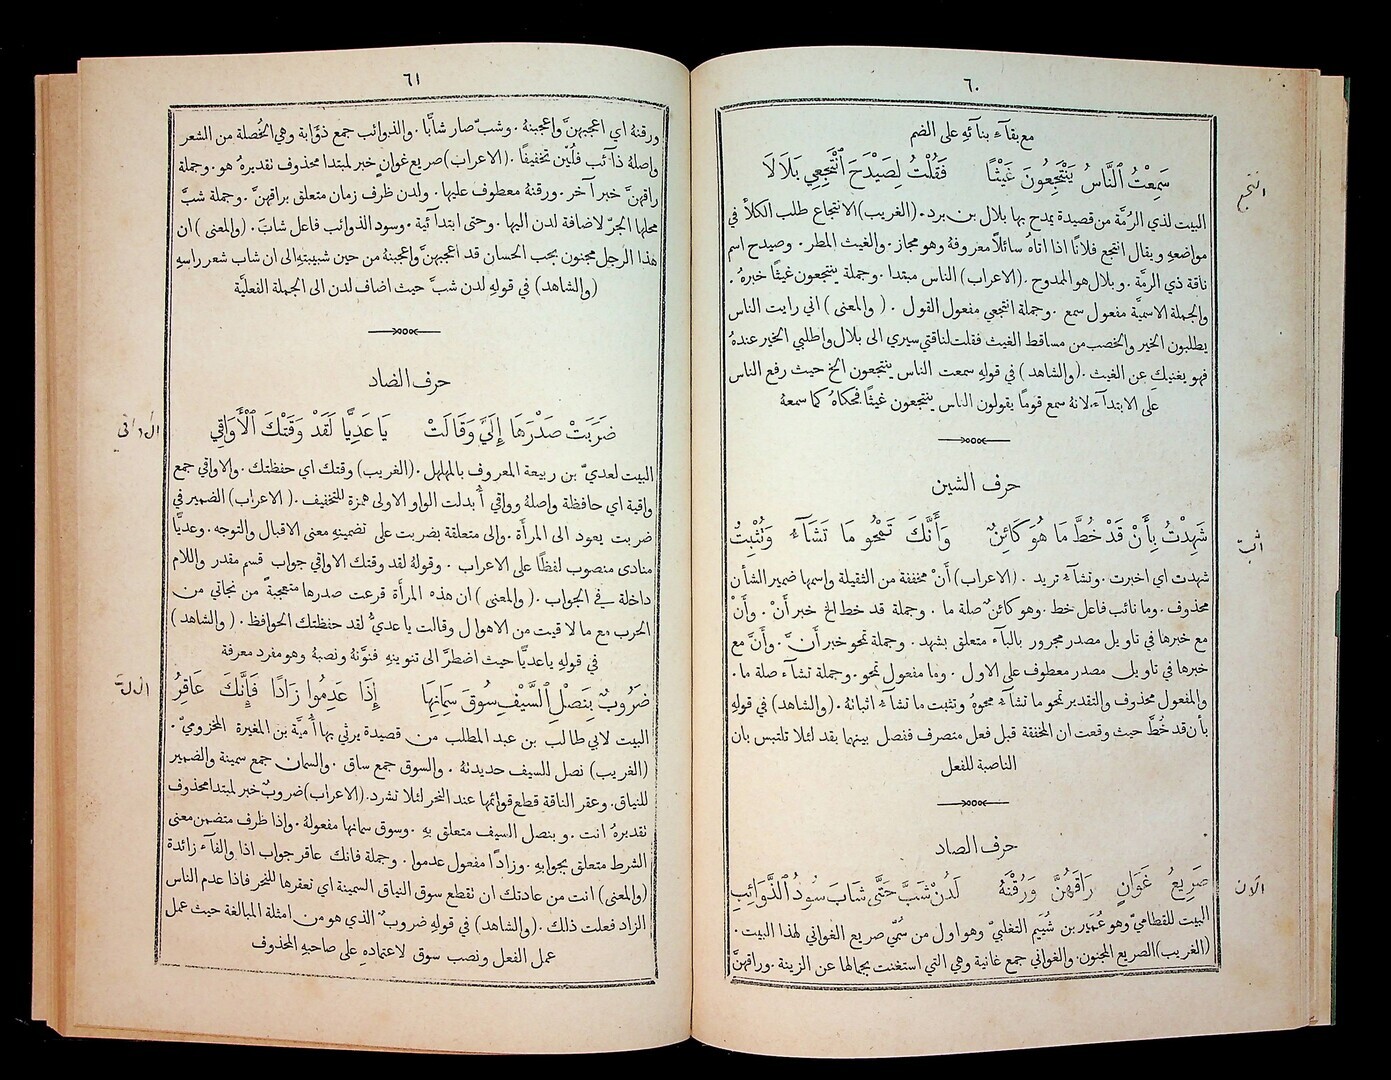 ٦٠
مع بقآء بنآئهِ على الضم
سَمِعْتُ ٱلنَّاسُ يَنْتَجِعُونَ غَيْثًا فَقُلْتُ لِصَيْدَحَ ٱنْتَجِعِي بِلَالَا
البيت لذي الرُمَّة من قصيدة يمدح بها بلال بن برد. (الغريب) الانتجاع طلب الكلأ في
مواضعهِ ويقال انتجع فلانًا اذا اتاهُ سائلًا معروفهُ وهو مجاز. والغيث المطر. وصيدح اسم
ناقة ذي الرمَّة. وبلال هو الممدوح. (الاعراب) الناس مبتدا. وجملة ينتجعون غيثًا خبرهُ.
والجملة الاسميَّة مفعول سمع. وجملة انتجعي مفعول القول. (والمعنى) اني رايت الناس
يطلبون الخير والخصب من مساقط الغيث فقلت لناقتي سيري الى بلال واطلبي الخير عندهُ
فهو يغنيك عن الغيث. (والشاهد) في قولهِ سمعت الناس ينتجعون الخ حيث رفع الناس
على الابتدآء لانهُ سمع قومًا يقولون الناس ينتجعون غيثًا فحكاهُ كما سمعهُ
حرف الشين
شَهِدْتُ بِأَنْ قَدْ خُطَّ مَا هُوَ كَائِنٌ وَأَنَّكَ تَمْحُو مَا تَشَآءُ وَتُثْبِتُ
شهدت اي اخبرت. وتشآء تريد. (الاعراب) أَنْ مخففة من الثقيلة واسمها ضمير الشأن
محذوف. وما نائب فاعل خط. وهو كائنٌ صلة ما. وجملة قد خط الخ خبر أَنْ. وأَنْ
مع خبرها في تاويل مصدر مجرور بالبآء متعلق بشهد. وجملة تمحو خبر أَنَّ. وأَنَّ مع
خبرها في تاويل مصدر معطوف على الاول. وما مفعول تمحو. وجملة تشآء صلة ما.
والمفعول محذوف والتقدير تمحو ما تشآء محوهُ وتثبت ما تشآء اثباتهُ. (والشاهد) في قولهِ
بأَن قد خُطَّ حيث وقعت ان المخففة قبل فعل متصرف ففصل بينهما بقد لئلا تلتبس بان
الناصبة للفعل
حرف الصاد
صَرِيعُ غَوَانٍ رَاقَهُنَّ وَرُقْنَهُ لَدُنْ شَبَّ حَتَّى شَابَ سُودُ ٱلذَّوَائِبِ
البيت للقطاميّ وهو عُمَير بن شُيَيم التغلبيّ وهو اول من سُمّي صريع الغواني لهذا البيت.
(الغريب) الصريع المجنون. والغواني جمع غانية وهي التي استغنت بجمالها عن الزينة. وراقهنَّ
٦١
ورقنهُ اي اعجبهنَّ واعجبنهُ. وشبَّ صار شابًّا. والذوائب جمع ذؤابة وهي الخُصلة من الشعر
واصلهُ ذآئب فليّن تخفيفًا. (الاعراب) صريع غوانٍ خبر لمبتدا محذوف تقديرهُ هو. وجملة
راقهنَّ خبر آخر. ورقنهُ معطوف عليها. ولدن ظرف زمان متعلق براقهنَّ. وجملة شبَّ
محلها الجرّ لاضافة لدن اليها. وحتى ابتدآئية. وسود الذوائب فاعل شابَ. (والمعنى) ان
هذا الرجل مجنون بحب الحسان قد اعجبهنَّ واعجبنهُ من حين شبيبتهِ الى ان شاب شعر راسهِ
(والشاهد) في قولهِ لدن شبَّ حيث اضاف لدن الى الجملة الفعليَّة
حرف الضاد
ضَرَبَتْ صَدْرَهَا إِلَيَّ وَقَالَتْ يَا عَدِيًّا لَقَدْ وَقَتْكَ ٱلْأَوَاقِي
البيت لعديّ بن ربيعة المعروف بالمهلهل. (الغريب) وقتك اي حفظتك. والاواقي جمع
واقية اي حافظة واصلهُ وواقي أُبدلت الواو الاولى همزة للتخفيف. (الاعراب) الضمير في
ضربت يعود الى المرأة. والى متعلقة بضربت على تضمينهِ معنى الاقبال والتوجه. وعديًّا
منادى منصوب لفظًا على الاعراب. وقولهُ لقد وقتك الاواقي جواب قسم مقدر واللام
داخلة في الجواب. (والمعنى) ان هذه المرأة قرعت صدرها متعجبةً من نجاتي من
الحرب مع ما لاقيت من الاهوال وقالت يا عديُّ لقد حفظتك الحوافظ. (والشاهد)
في قولهِ يا عديًّا حيث اضطرَّ الى تنوينهِ فنوَّنهُ ونصبهُ وهو مفرد معرفة
ضَرُوبٌ بِنَصْلِ ٱلسَّيْفِ سُوقَ سِمَانِهَا إِذَا عَدِمُوا زَادًا فَإِنَّكَ عَاقِرُ
البيت لابي طالب بن عبد المطلب من قصيدة يرثي بها أُميَّة بن المغيرة المخزوميّ.
(الغريب) نصل للسيف حديدتهُ. والسوق جمع ساق. والسمان جمع سمينة والضمير
للنياق. وعقر الناقة قطع قوائمها عند النحر لئلا تشرد. (الاعراب) ضروبٌ خبر لمبتدا محذوف
تقديرهُ انت. وبنصل السيف متعلق بهِ. وسوق سمانها مفعولهُ. واذا ظرف متضمن معنى
الشرط متعلق بجوابهِ. وزادًا مفعول عدموا. وجملة فانك عاقر جواب اذا والفآء زائدة
(والمعنى) انت من عادتك ان تقطع سوق النياق السمينة اي تعقرها للنحر فاذا عدم الناس
الزاد فعلت ذلك. (والشاهد) في قولهِ ضروبٌ الذي هو من امثلة المبالغة حيث عمل
عمل الفعل ونصب سوق لاعتمادهِ على صاحبهِ المحذوف